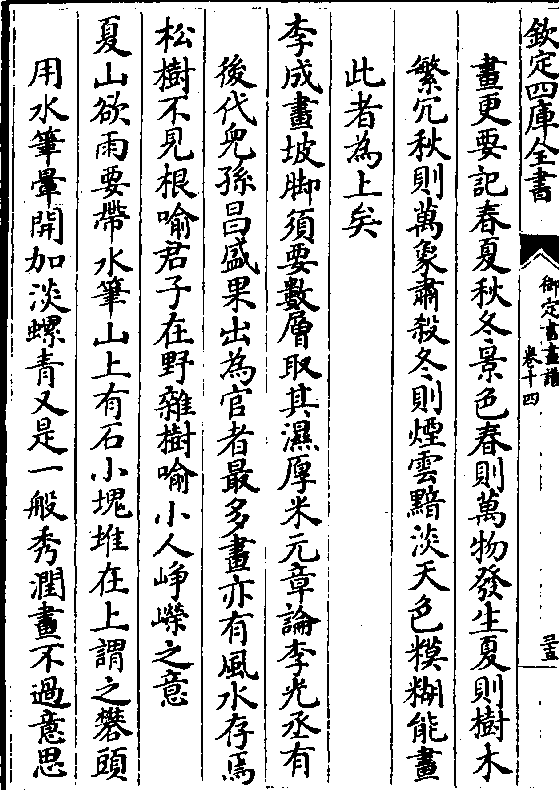 欽定四庫全書
御定書畫譜
卷十四
三十五
畫更要記春夏秋冬景色春則萬物發生夏則樹木
繁冗秋則萬象肅殺冬則煙雲黯淡天色糢糊能畫
此者為上矣
李成畫坡脚須要數層取其濕厚米元章論李光丞有
後代兒孫昌盛果出為官者最多畫亦有風水存焉
松樹不見根喻君子在野雜樹喻小人崢嶸之意
夏山欲雨要帶水筆山上有石小塊堆在上謂之礬頭
用水筆暈開加淡螺青又是一般秀潤畫不過意思